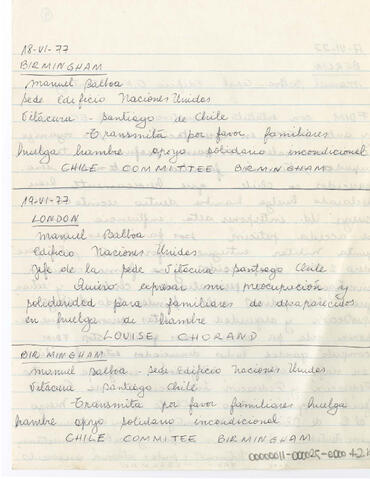 18-VI-77
BIRMINGHAM
Manuel Balboa
Sede Edificio Naciones Unidos
Vitacura - Santiago de Chile
Transmita por favor familiares
huelga hambre apoyo solidario incondicional
CHILE COMMITTEE BIRMINGHAM
19-VI-77
LONDON
Manuel Balboa
Edificio Naciones Unidos
Jefe de la sede Vitacura Santiago Chile
Quiero expresar mi preocupación y
solidaridad para familiares de desaparecidos
en huelga de hambre
LOUISE CHORAND
BIRMINGHAM
Manuel Balboa - Sede Edificio Naciones Unidos
Vitacura - Santiago Chile
Transmita por favor familiares huelga
hambre apoyo solidario incondicional
CHILE COMMITEE BIRMINGHAM
00000011-000025-000042.10